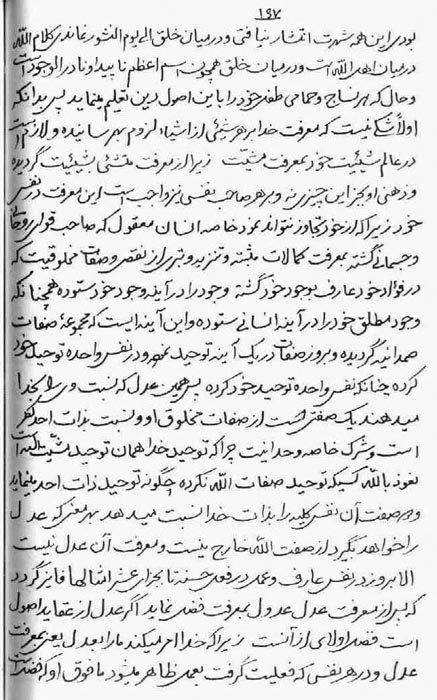 ۱۹۷
بودی این همه شهرت انتشار نیافتی و در میان خلق الی یوم النشور نماندی کلام الله
در میان اهل الله است و در میان خلق همچون اسم اعظم ناپیدا و نادر الوجود است
و حال که هر نساج و حمامی طفل خود را باین اصول دین تعلیم مینماید پس بدانکه
اولا شکی نیست که معرفت خدا بر هر شیئی از اشیاء لزوم بهر سانیده و لازم است
در عالم شیئیت خود بمعرفت مشیت زیرا از معرفت مشیتی بشیئیت گردیده
و ذهنی او بجز این چیزی نه و بر هر صاحب نفسی نیز واجب است این معرفت در نفس
خود زیرا که از خود تجاوز نتواند نمود خاصه انسان معقول که صاحب قوای روحانی
و جسمانی گشته بمعرفت کمالات مثبته و تنزیه و تبری از نقص و صفات مخلوقیت که
در فؤاد خود عارف بوجود خود گشته وجود را در آینه وجود خود ستوده همچنانکه
وجود مطلق خود را در آینه انسانی ستوده و این آینه ایست که مجموعهٔ صفات
صمدانیه گردیده و بروز صفات در یک آینه توحید نموده و در نفس واحده توحید خود
کرده چنانکه نفس واحده توحید خود کرده پس همین عدل که نسبت وی را بخدا
میدهند یک صفتی است از صفات مخلوق او و نسبت بذات احد کفر
است و شرک خاصه وحدانیت چرا که توحید خدا همان توحید مشیت
نعوذ بالله کسیکه توحید صفات الله نکرده چگونه توحید ذات احد مینماید
و هر صفت آن نفس کلیه را بذات خدا نسبت میدهد بهر معنی که عدل
را خواهد بگیرد از صفت الله خارج نیست و معرفت آن عدل نیست
الا بروز در نفس عارف و عمل در فعل حسنه تا بجزای عشر امثالها فایز گردد
که پس از معرفت عدل عدول بمعرفت فضل نماید اگر عدل از عقاید اصول
است فضل اولای از آنست زیرا که خدا امر میکند ما را بعدل یعنی بمعرفت
عدل و در هر نفسی که فعلیت گرفت بعمل ظاهر میشود ما فوق او که فضل است